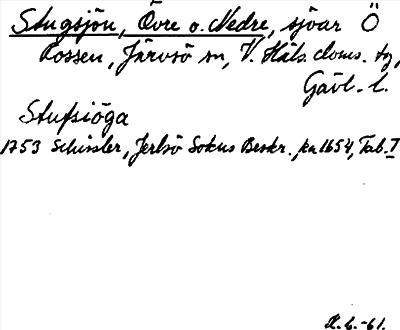 Stugsjön, Övre o. Nedre, sjöar Ö
Rossen, Järvsö sn, V. Häls. doms. tg,
Gävl. l.
Stufsiöga
1753 Schissler, Jerlsö Sokns Beskr., ka 1654, Tab. I
H. G. -61.